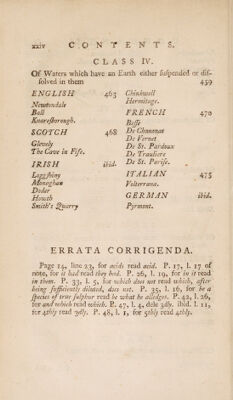 xxiv CONTENTS.
CLASS IV.
Of Waters which have an Earth either ſuſpended or diſ-
ſolved in them 459
ENGLISH 463
Newtondale
Ball
Knareſborough.
SCOTCH 468
Glevely
The Cave in Fife.
IRISH ibid.
Loggſhiny
Moneghan
Doder
Howth
Smith's Quarry
Chinkwell
Hermitage.
FRENCH 470
Beſſe
De Chanonat
De Vernet
De St. Pardoux
De Trauliere
De St. Pariſe.
ITALIAN 475
Volterrana.
GERMAN ibid.
Pyrmont.
ERRATA CORRIGENDA.
Page 14, line 23, for acids read acid. P. 17, l. 17 of
note, for it had read they bid. P. 26, l. 19, for in it read
in them. P. 33, l. 5, for which does not read which, after
being ſufficiently diluted, does not. P. 35, l. 16, for be a
ſpecies of true ſulphur read be what he alledges. P. 42, l. 26,
for and which read which. P. 47, l. 4, dele 3dly. ibid. l. 11,
for 4thly read 3dly. P. 48, l. 1, for 5thly read 4thly.